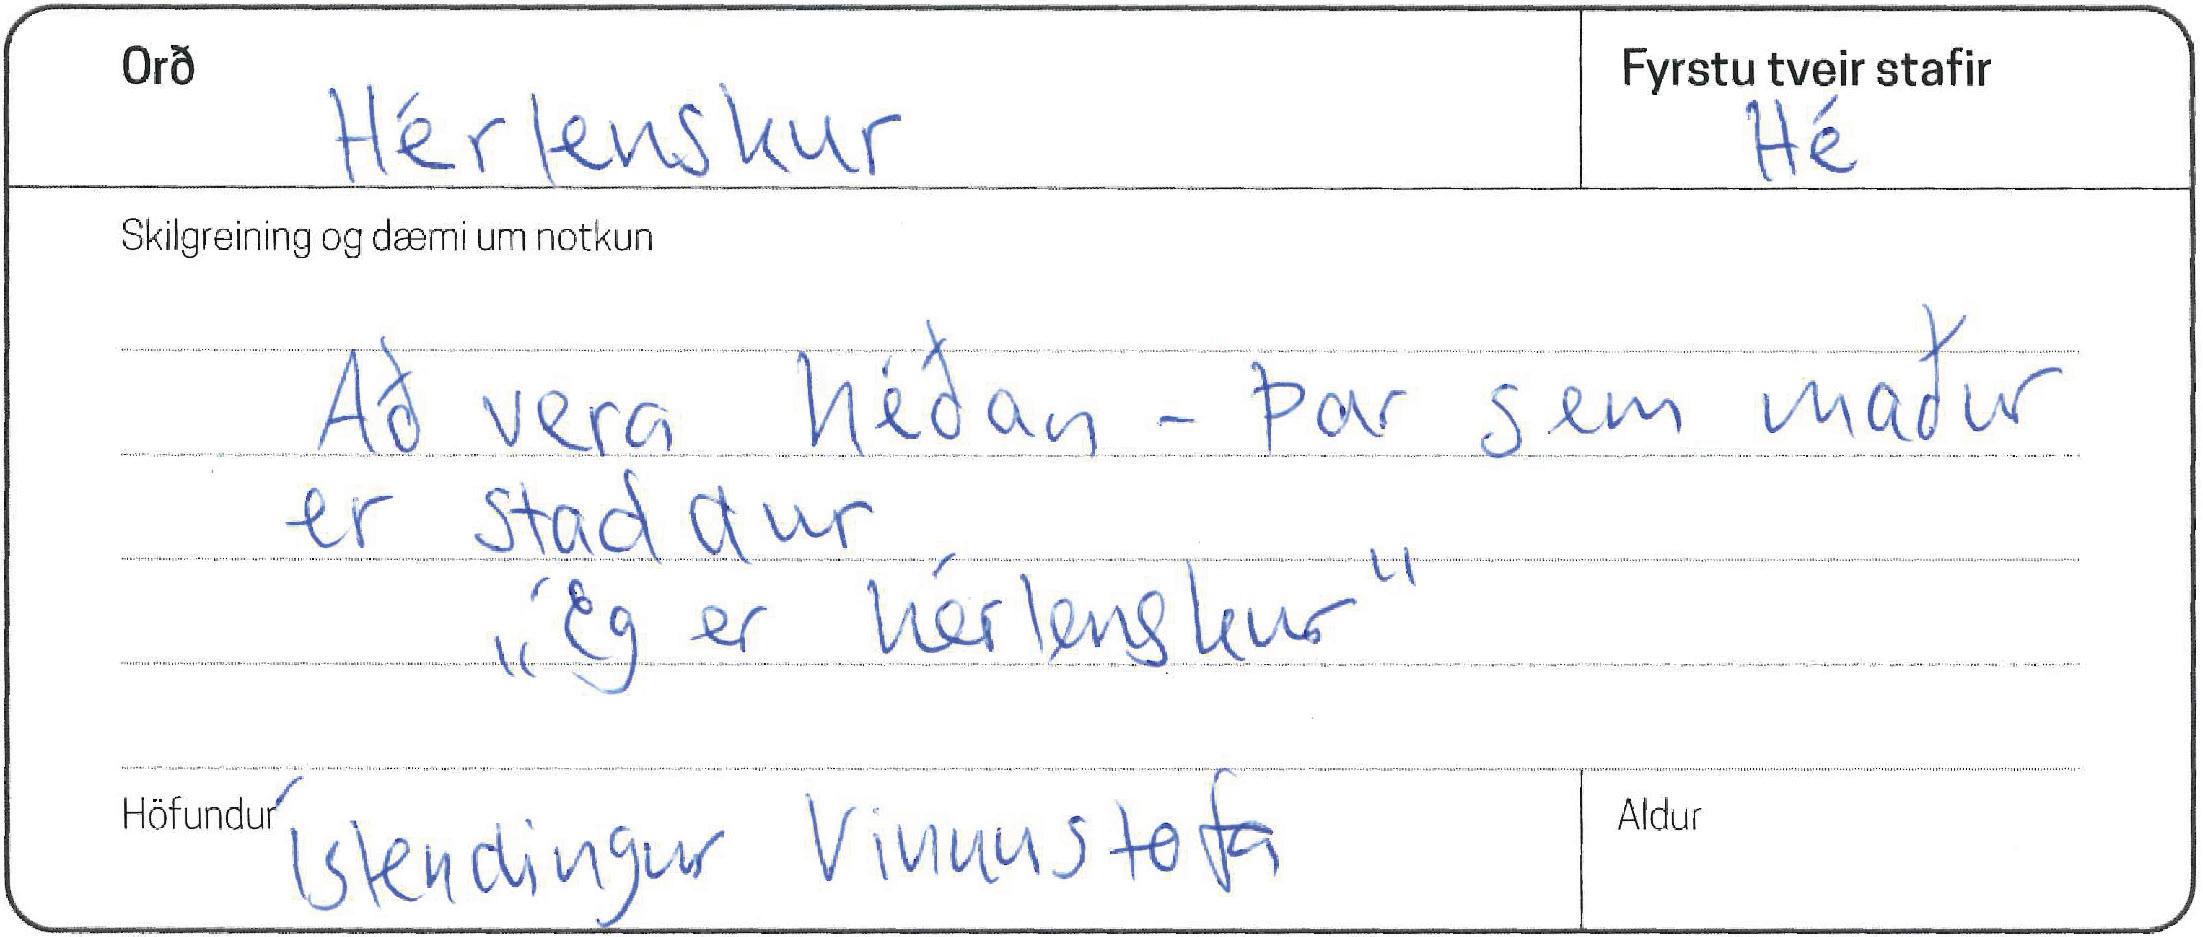 Orð
Hérlenskur
Fyrstu tveir stafir
Hé
Skilgreining og dæmi um notkun
Að vera héðan - Þar sem maður
er staddur
„Ég er hérlenskur“
Höfundur Íslendingur Vinnustofa
Aldur